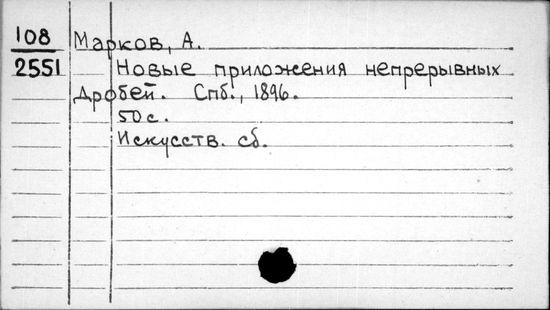 108
2551
Марков, А.
Новые приложения непрерывных
Дробей. Спб., 1896.
50 с.
Искусств. сб.